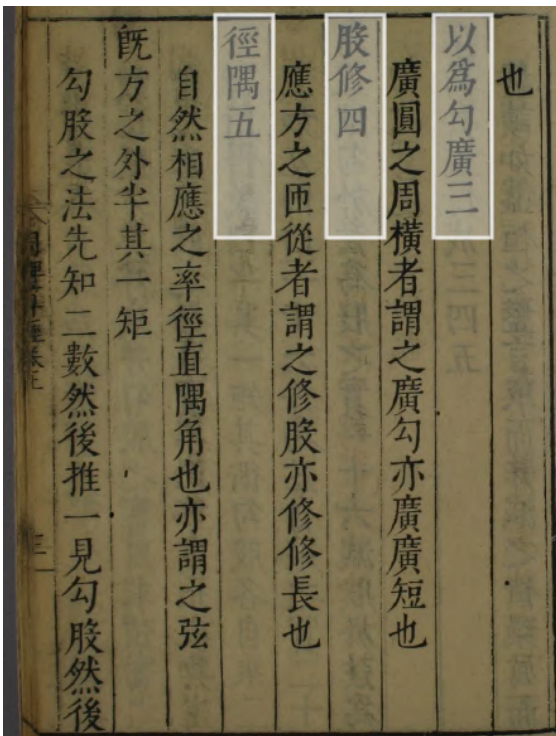 也
以爲勾廣三
廣圓之周橫者謂之廣勾亦廣廣短也
股修四
應方之匝從者謂之修股亦修修長也
徑隅五
自然相應之率徑直隅角也亦謂之弦
旣方之外半其一矩
勾股之法先知二數然後推一見勾股然後